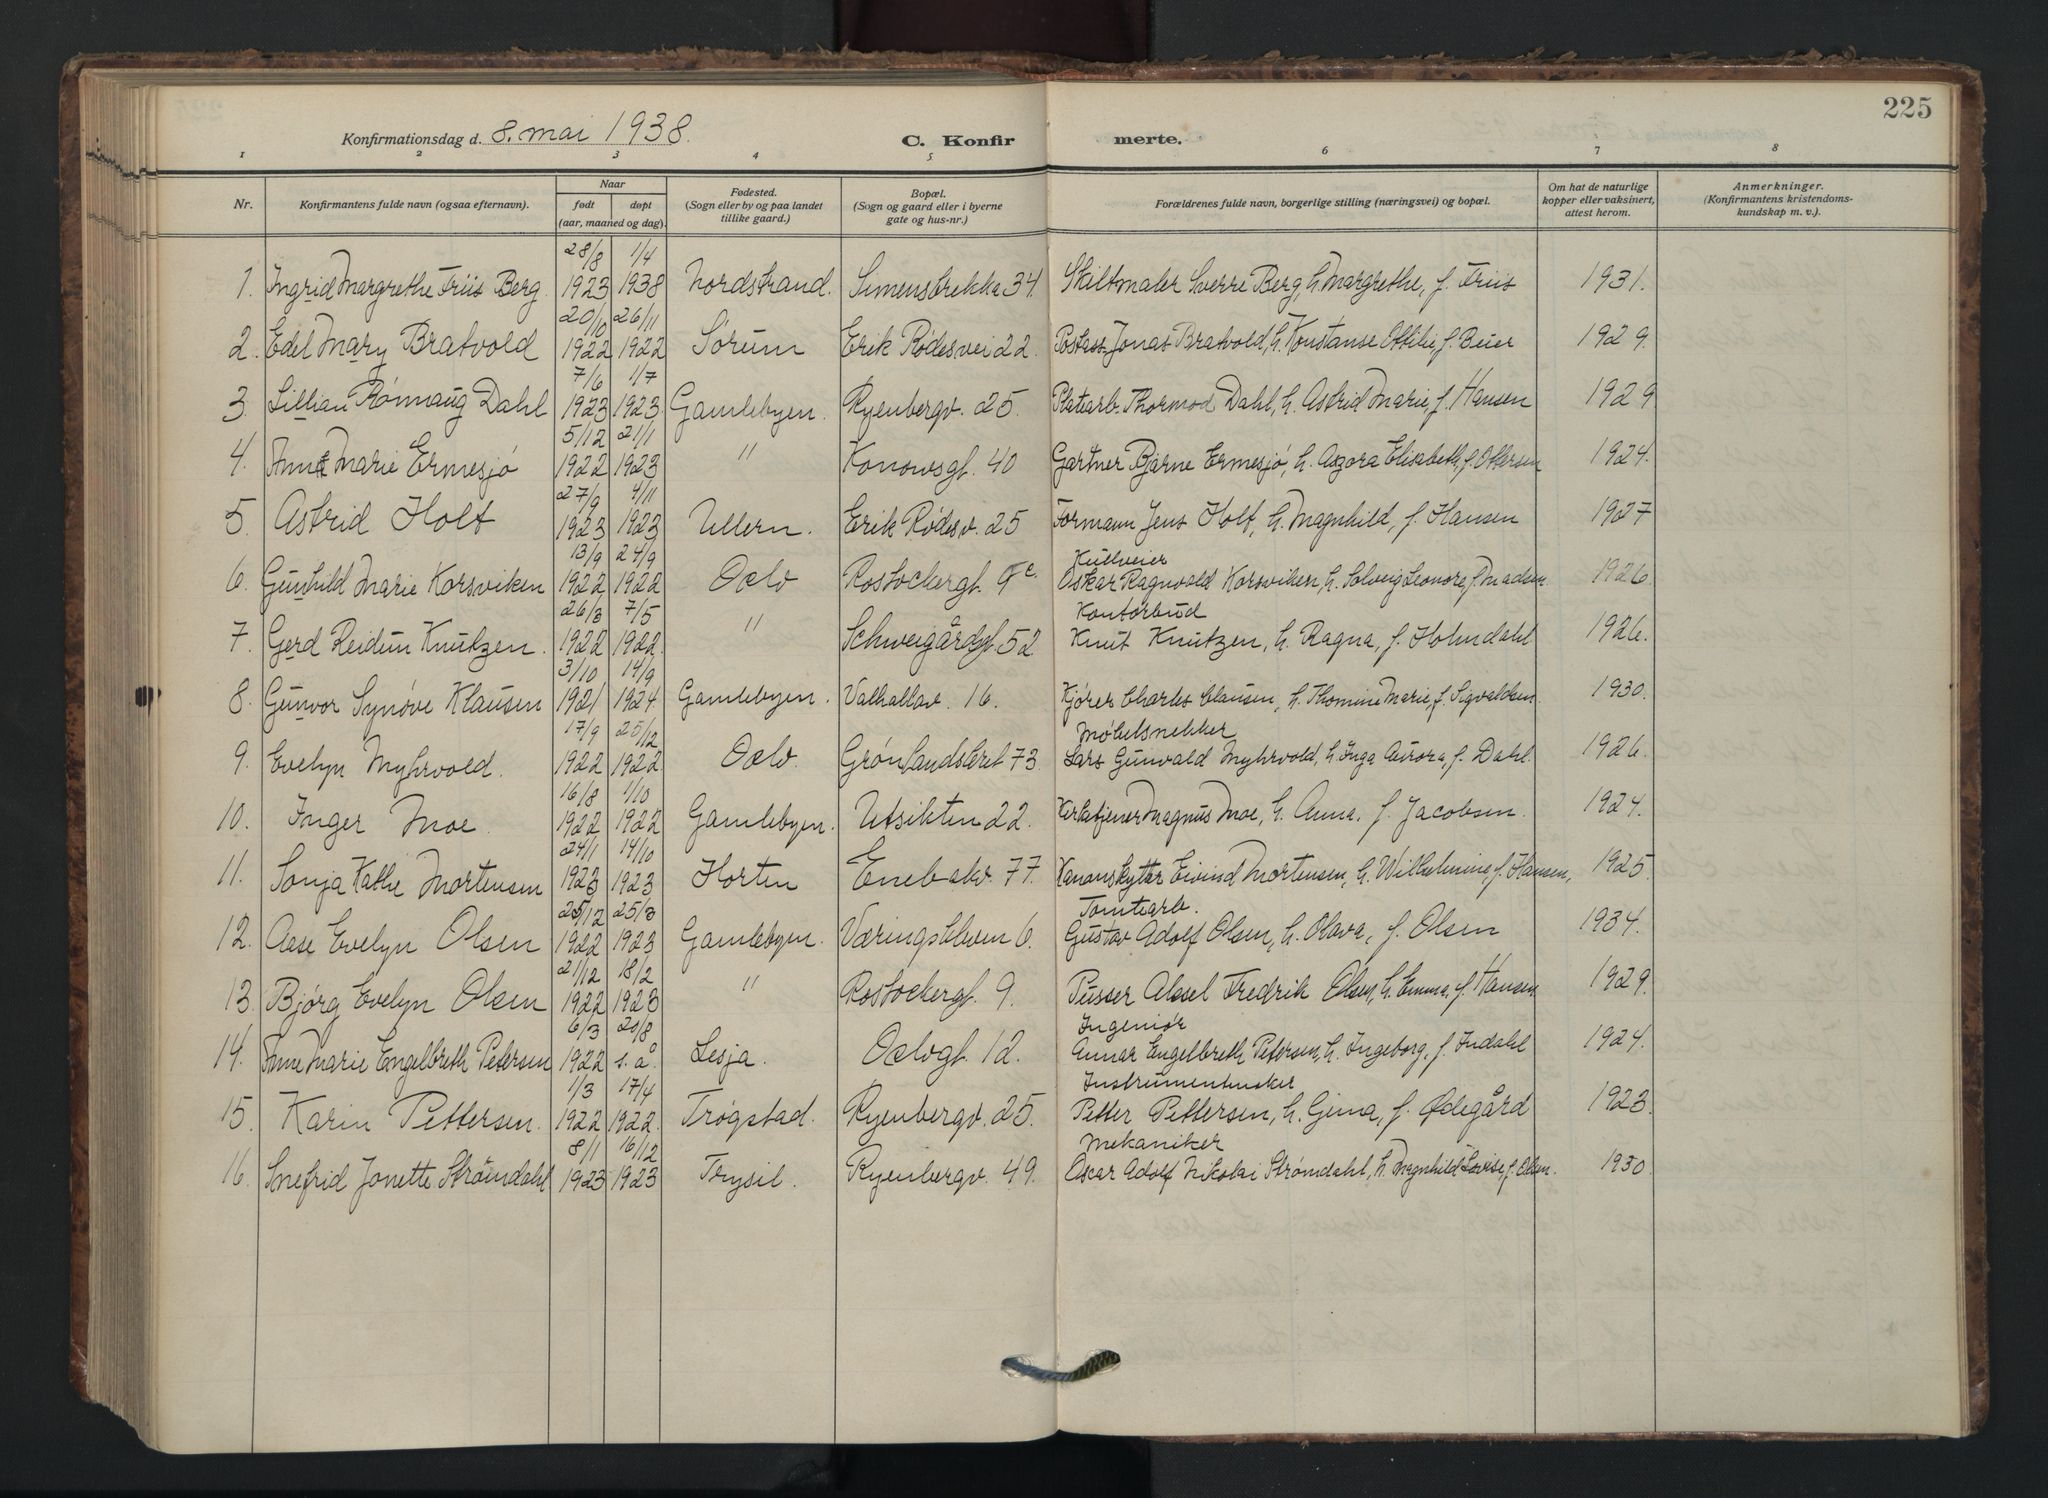 225
Konfirmationsdag d. 8. mai 1938.
C. Konfirmerte.
1 2 3 4 5 6 7 8
Nr. Konfirmantens fulde navn (ogsaa efternavn). Naar født døpt (aar, maaned og dag). Fødested. (Sogn eller by og paa landet tillike gaard.) Bopæl. (Sogn og gaard eller i byerne gate og hus-nr.) Forældrenes fulde navn, borgerlige stilling (næringsvei) og bopæl. Om hat de naturlige kopper eller vaksinert, attest herom. Anmerkninger. (Konfirmantens kristendomskundskap m. v.).
1. Ingrid Margrethe Friis Berg. 28/8 1923 1/4 1938 Nordstrand. Simensbrekka 34. Skiltmaler Sverre Berg, h. Margrethe, f. Friis 1931.
2. Edel Mary Bratvold 20/10 1922 26/11 1922 Sørum Erik Rødesvei 22. Postass. Jonas Bratvold, h. Konstanse Ottilie, f. Beier 1929.
3. Lillian Rønnaug Dahl 7/6 1923 1/7 1923. Gamlebyen. Ryenbergv. 25. Platearb. Thormod Dahl, h. Astrid Marie, f. Hansen 1929
4. Anne Marie Ermesjø 5/12 1922 21/1 1923 " Konowsgt. 40 Gartner Bjarne Ermesjø, h. Aszora Elisabeth, f. Ottersen 1924.
5. Astrid Holt 27/9 1923 4/11 1923 Ullern. Erik Rødesv. 25 Formann Jens Holt, h. Magnhild, f. Hansen 1927
6. Gunhild Marie Korsviken 13/9 1922 24/9 1922 Oslo Rostockergt. 9c. Kullveier Oskar Ragnvald Korsviken, h. Solveig Leonore, f. Madsen. 1926.
7. Gerd Reidun Knutzen. 26/3 1922 7/5 1922. " Schweigårdsgt. 52. Kontorbud Knut Knutzen, h. Ragna, f. Holmdahl 1926.
8. Gunvor Synøve Klausen 3/10 1921 14/9 1924 Gamlebyen. Valhallav. 16. Kjører Charles Clausen, h. Thomine Marie, f. Sigvaldsen. 1930.
9. Evelyn Myhrvold. 17/9 1922 25/12 1922. Oslo. Grønlandsleret 73. Møbelsnekker Lars Gunvald Myhrvold, h. Inga Aurora, f. Dahl. 1926.
10. Inger Moe. 16/8 1922 1/10 1922 Gamlebyen. Utsikten 22. Kirketjener Magnus Moe, h. Anna, f. Jacobsen. 1924.
11. Sonja Kathe Mortensen 24/1 1923 14/10 1923 Horten Enebakv. 77. Kanonskytter Eivind Mortensen, h. Wilhelmine, f. Hansen, 1925.
12. Aase Evelyn Olsen 25/12 1922 25/3 1923 Gamlebyen. Væringskleven 6. Tomtearb. Gustav Adolf Olsen, h. Olava, f. Olsen 1934.
13. Bjørg Evelyn Olsen 21/12 1922 18/2 1923 " Rostockergt. 9. Pusser Aksel Fredrik Olsen, h. Emma, f. Hansen 1929.
14. Anne Marie Engelbreth Petersen 6/3 1922 20/8 s. å. Lesja. Oslogt. 12. Ingeniør Annar Engelbreth Petersen, h. Ingeborg, f. Indahl 1924.
15. Karin Pettersen. 1/3 1922 17/4 1922. Trøgstad. Ryenbergv. 25. Instrumentmaker Petter Pettersen, h. Gima, f. Ødegård 1923.
16. Snefrid Jonette Strömdahl 8/1 1923 16/12 1923 Trysil. Ryenbergv. 49. Mekaniker Oscar Adolf Nikolai Strømdahl, h. Magnhild Lovise, f. Olsen. 1930.